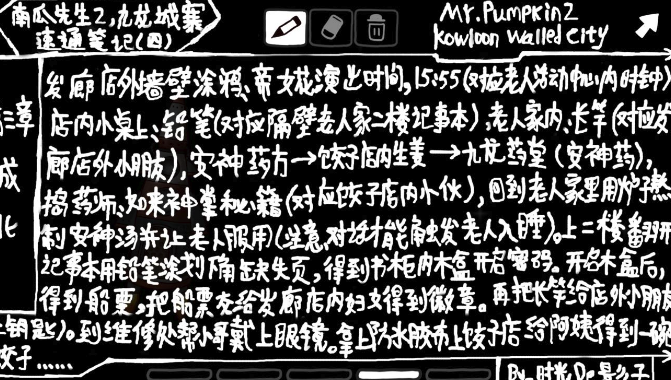 南瓜先生2九龙城寨
速通笔记(四)
Mr.Pumpkin2
Kowloon Walled City
三章
成
北
发廊店外墙壁涂鸦、帝女花演出时间,15:55(对应老人活动中心内时钟)
店内小桌上、铅笔(对应隔壁老人家二楼记事本)、老人家内、长竿(对应发
廊店外小朋友),安神药方→饺子店内生姜→九龙药堂(安神药),
捣药师、如来神掌秘籍(对应饺子店内小伙),回到老人家里用炉子熬
制安神汤并让老人服用(注意,对话才能触发老人入睡)。上二楼翻开
记事本用铅笔涂划确缺失页,得到书柜内木盒开启密码。开启木盒后,
得到船票,把船票交给发廊店内妇女得到徽章。再把长竿给店外小朋友
上钥匙)。到维修处帮小哥戴上眼镜。拿上防水胶布上饺子店给阿姨得到一碗
饺子……
By 时光De影子